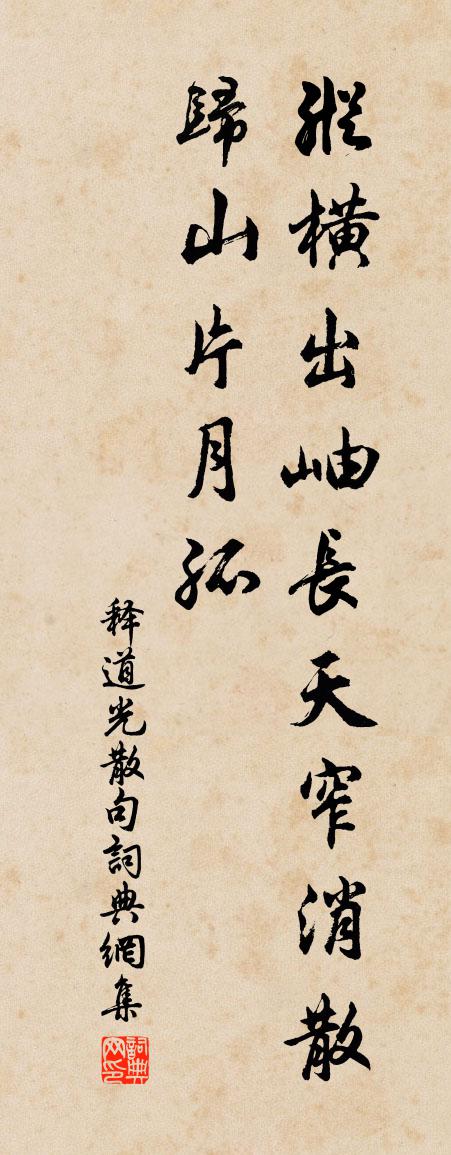 縱橫出岫長天窄消散
歸山片月孤
释道光散句詞典網集
詞典网印